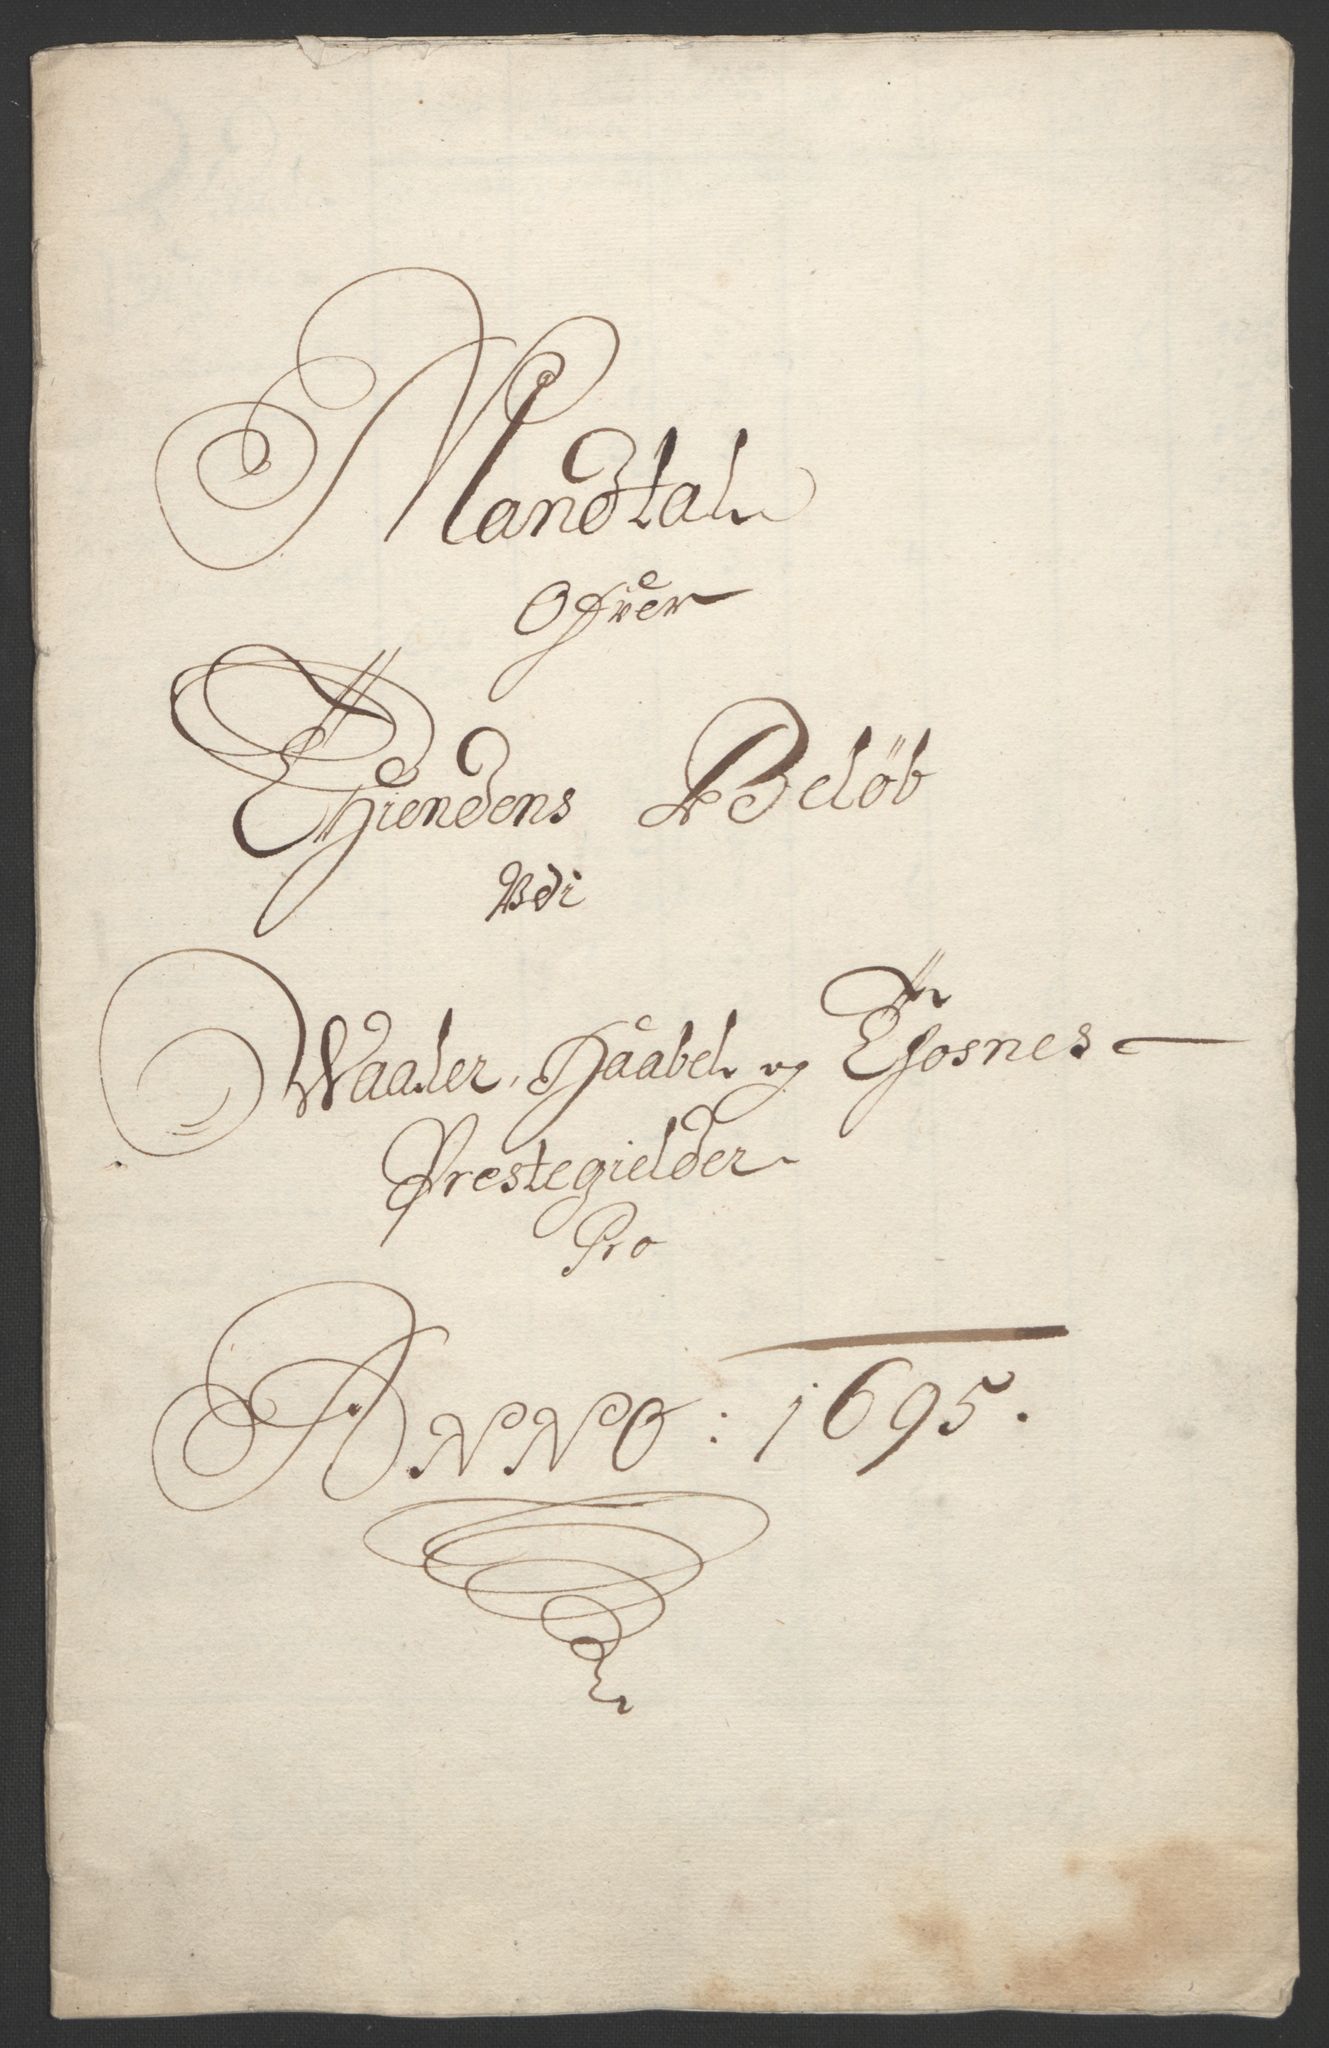 Mandtal
Ofver
Thiendens Beløb
Vdi
Waaler, Haabel og Thosnes
Prestegielder
Pro
ANNO: 1695.